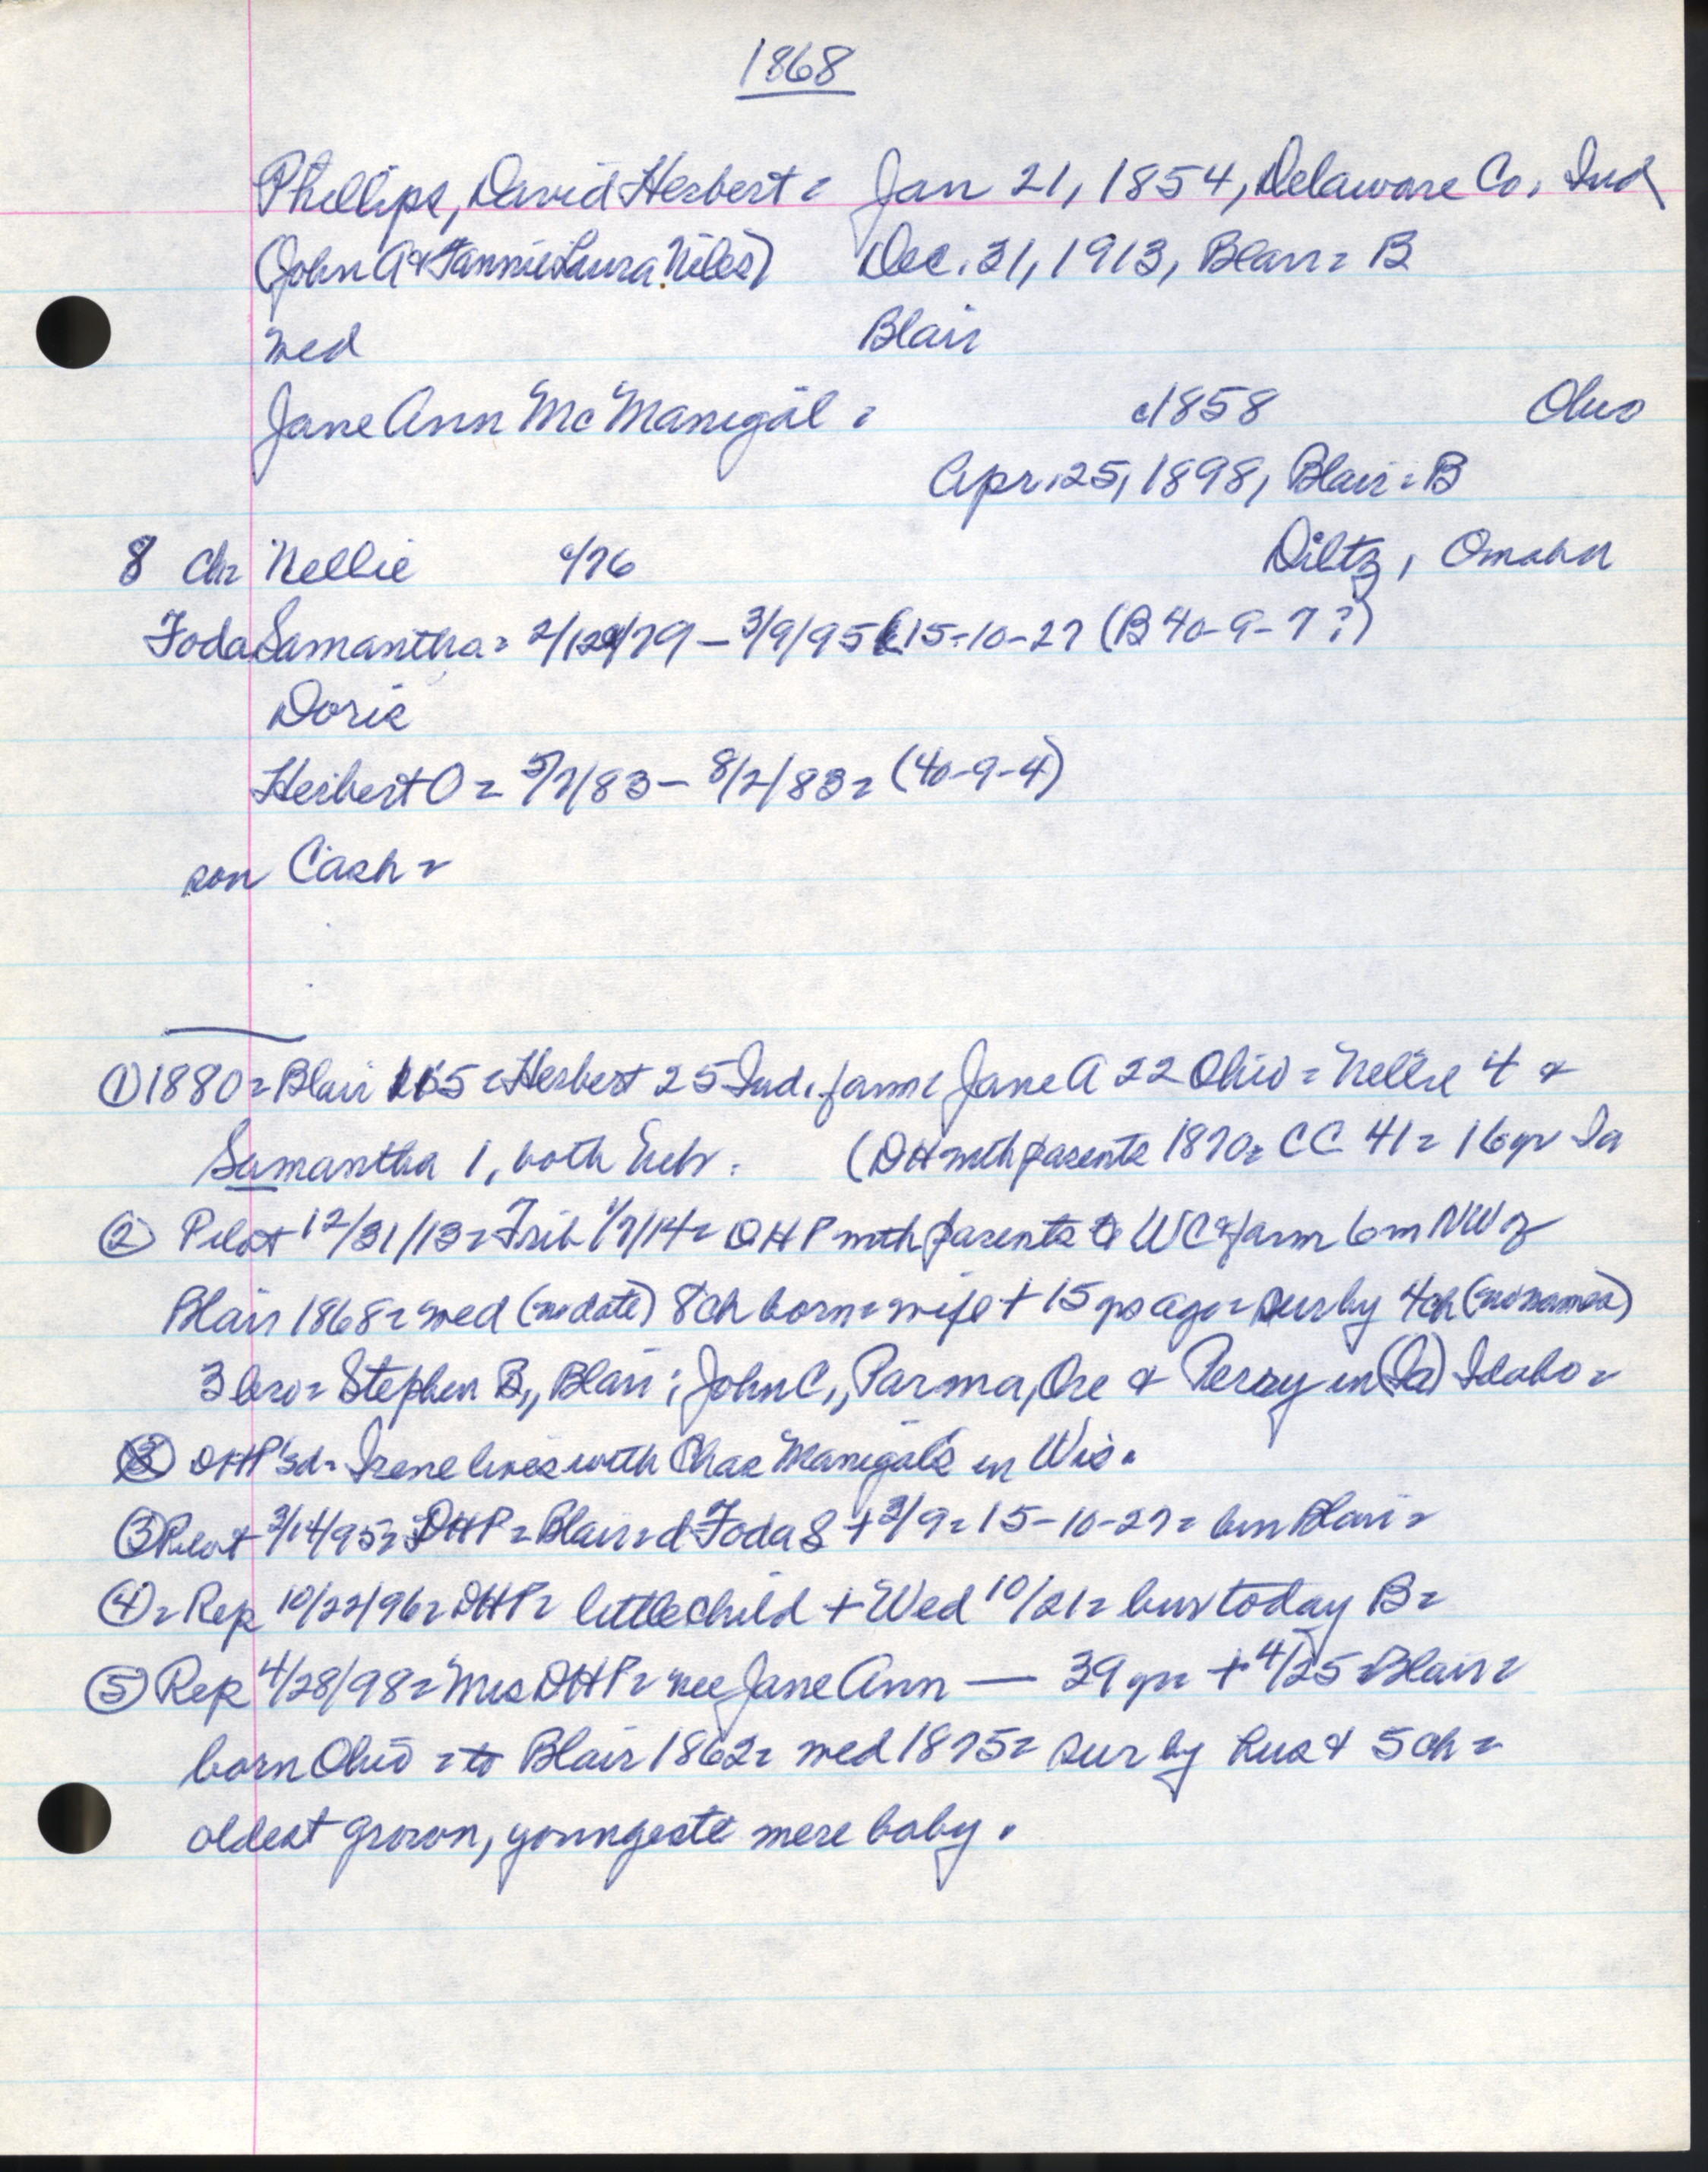 1868
Phillips, David Herbert = Jan 21, 1854, Delaware Co, Ind
(John A & Fannie Laura Niles) Dec. 31, 1913, Blair = B
wed Blair
Jane Ann McManigal = c1858 Ohio
Apr. 25, 1898, Blair = B
8 Ch = Nellie c/76 Diltz, Omaha
Foda Samantha = 2/12/79 - 3/9/95 15-10-27 (B 40-9-7?)
Doris
Herbert O = 5/7/83 - 8/2/83 = (40-9-4)
son Cash =
① 1880 = Blair 165 = Herbert 25 Ind. farm = Jane A 22 Ohio = Nellie 4 &
Samantha 1, both Neb. (DH with parents 1870 = CC 41 = 16 yr Ia
② Pilot 12/31/13 = Trib 1/7/14 = DHP with parents to WC & farm 6 m NW of
Blair 1868 = wed (no date) 8 ch born = wife + 15 ys ago = sur by 4 ch (no names)
3 bro = Stephen B., Blair; John C., Parma, Ore & Perry in (Ia) Idaho =
③ DHP's d = Irene lives with Chas Manigals in Wis.
③ Pilot 3/14/95 = DHP = Blair = d Foda S + 3/9 = 15-10-27 = bur Blair =
④ = Rep 10/22/96 = DHP = little child + Wed 10/21 = bur today B =
⑤ Rep 4/28/98 = Mrs DHP = nee Jane Ann — 39 yr = + 4/25 = Blair =
born Ohio = to Blair 1862 = wed 1875 = sur by hus & 5 ch =
oldest grown, youngest mere baby.